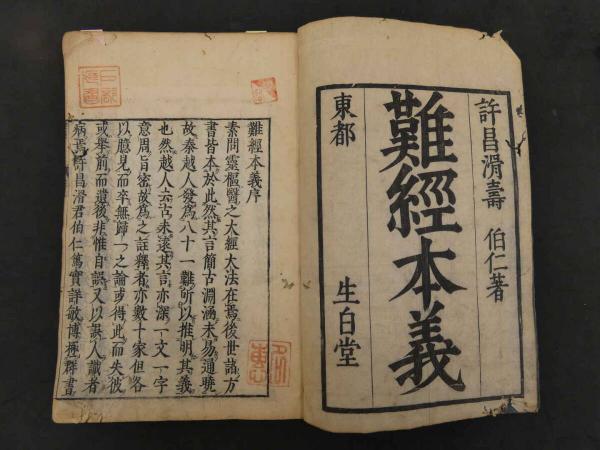 許昌滑壽 伯仁著
難經本義
東都 生白堂
難經本義序
素問靈樞醫之大經大法在焉後世諸方
書皆本於此然其言簡古淵涵未易通曉
故秦越人發爲八十一難所以推明其義
也然越人去古未遠其言亦深一文一字
意周旨密故爲之註釋者亦數十家但各
以臆見而卒無歸一之論或得此而失彼
或舉前而遺後非惟自誤又以誤人識者
病焉許昌滑君伯仁篤實詳敏博極群書